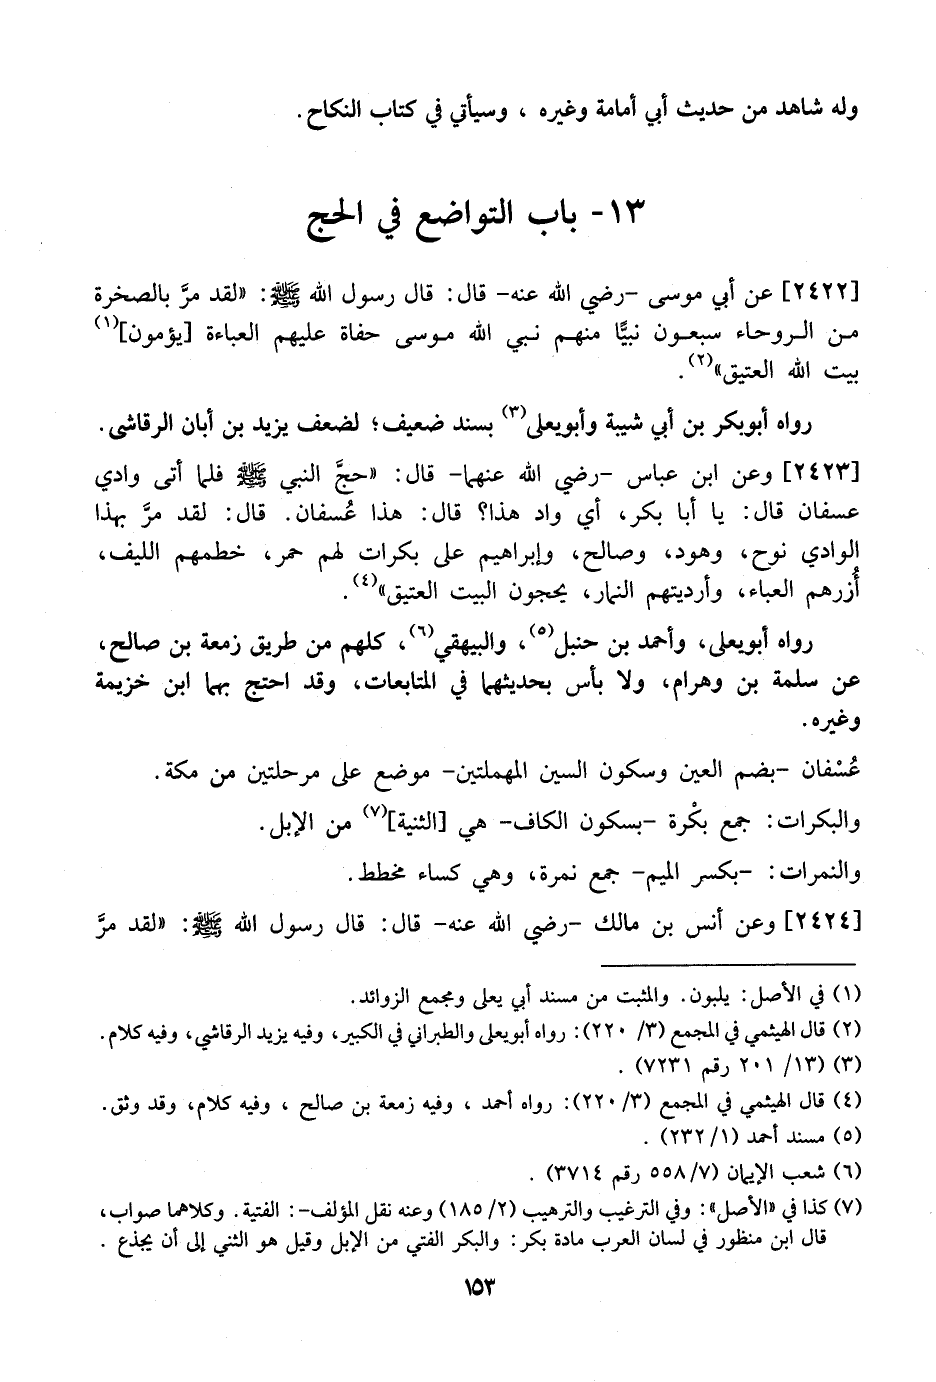 وله شاهد من حديث أبي أمامة وغيره ، وسيأتي في كتاب النكاح.
١٣- باب التواضع في الحج
[٢٤٢٢] عن أبي موسى -رضي الله عنه- قال: قال رسول الله ﷺ: «لقد مرَّ بالصخرة
من الروحاء سبعون نبيًّا منهم نبي الله موسى حفاة عليهم العباءة [يؤمون](١)
بيت الله العتيق»(٢).
رواه أبوبكر بن أبي شيبة وأبويعلى(٣) بسند ضعيف؛ لضعف يزيد بن أبان الرقاشى.
[٢٤٢٣] وعن ابن عباس -رضي الله عنهما- قال: «حجَّ النبي ﷺ فلما أتى وادي
عسفان قال: يا أبا بكر، أي واد هذا؟ قال: هذا عُسفان. قال: لقد مرَّ بهذا
الوادي نوح، وهود، وصالح، وإبراهيم على بكرات لهم حمر، خطمهم الليف،
أُزرهم العباء، وأرديتهم النمار، يحجون البيت العتيق»(٤).
رواه أبويعلى، وأحمد بن حنبل(٥)، والبيهقي(٦)، كلهم من طريق زمعة بن صالح،
عن سلمة بن وهرام، ولا بأس بحديثهما في المتابعات، وقد احتج بهما ابن خزيمة
وغيره.
عُسْفان -بضم العين وسكون السين المهملتين- موضع على مرحلتين من مكة.
والبكرات: جمع بكْرة -بسكون الكاف- هي [الثنية](٧) من الإبل.
والنمرات: -بكسر الميم- جمع نمرة، وهي كساء مخطط.
[٢٤٢٤] وعن أنس بن مالك -رضي الله عنه- قال: قال رسول الله ﷺ: «لقد مرَّ
(١) في الأصل: يلبون. والمثبت من مسند أبي يعلى ومجمع الزوائد.
(٢) قال الهيثمي في المجمع (٣/ ٢٢٠): رواه أبويعلى والطبراني في الكبير، وفيه يزيد الرقاشي، وفيه كلام.
(٣) (١٣/ ٢٠١ رقم ٧٢٣١) .
(٤) قال الهيثمي في المجمع (٣/ ٢٢٠): رواه أحمد ، وفيه زمعة بن صالح ، وفيه كلام، وقد وثق.
(٥) مسند أحمد (١/ ٢٣٢) .
(٦) شعب الإيمان (٧/ ٥٥٨ رقم ٣٧١٤) .
(٧) كذا في «الأصل»: وفي الترغيب والترهيب (٢/ ١٨٥) وعنه نقل المؤلف-: الفتية. وكلاهما صواب،
قال ابن منظور في لسان العرب مادة بكر: والبكر الفتي من الإبل وقيل هو الثني إلى أن يجذع .
١٥٣